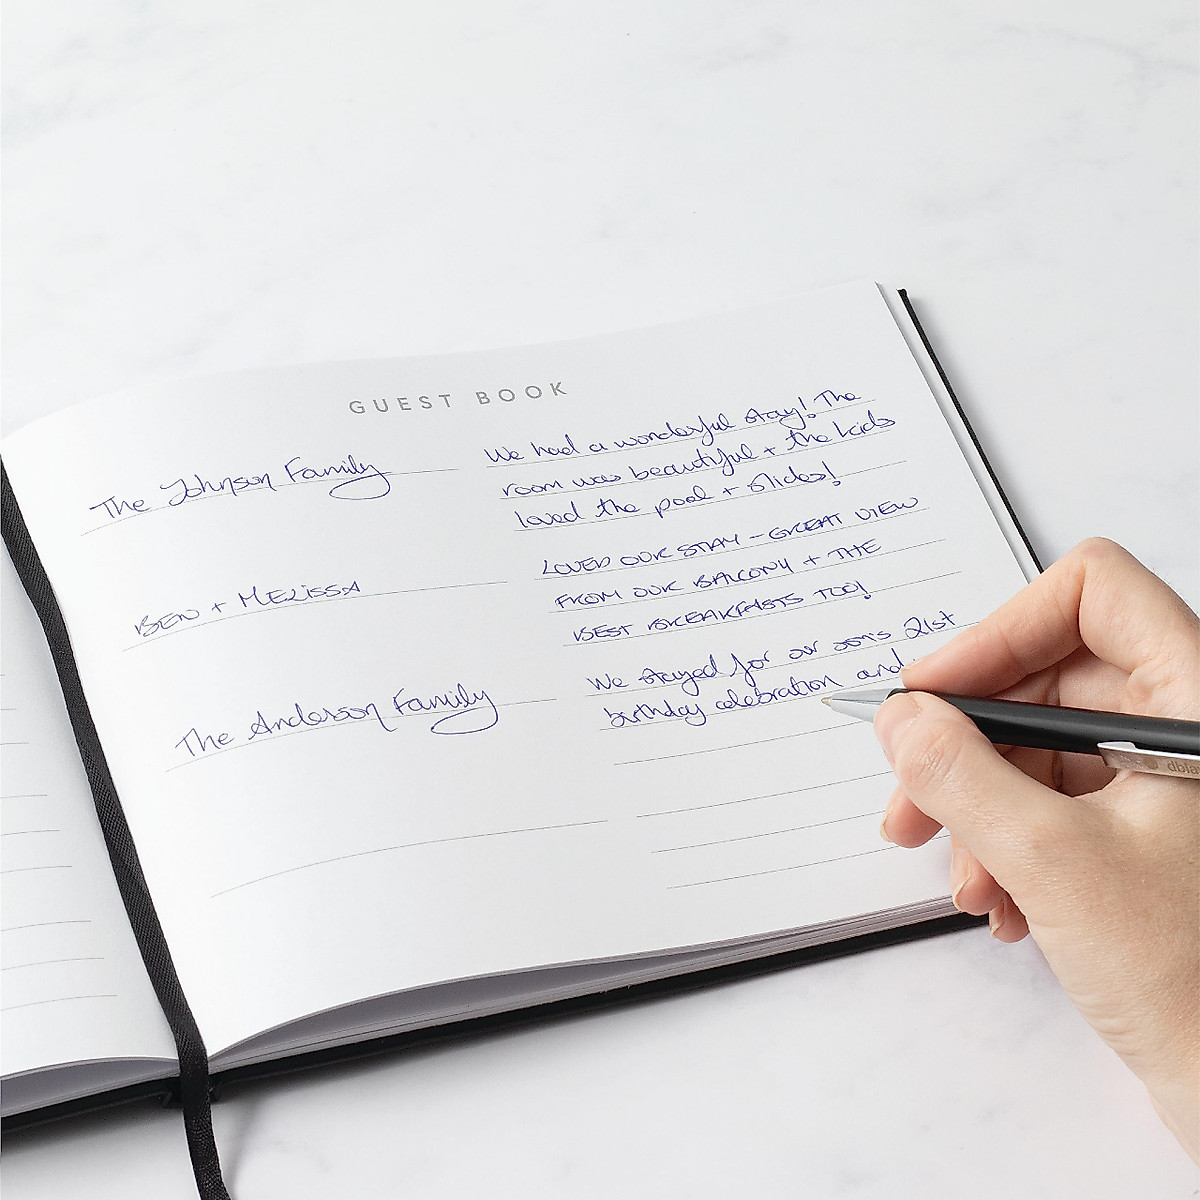 GUEST BOOK
The Johnson Family
We had a wonderful stay! The
room was beautiful + the kids
loved the pool + slides!
BEN + MELISSA
LOVED OUR STAY - GREAT VIEW
FROM OUR BALCONY + THE
BEST BREAKFASTS TOO!
The Anderson Family
We stayed for our son's 21st
birthday celebration and